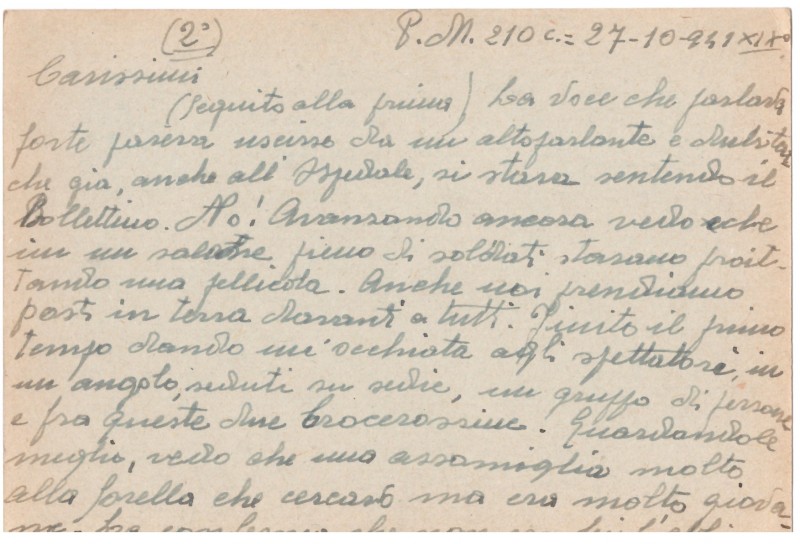 (2°) P.M. 210 c.= 27-10-941 XIX°
Carissimi
(seguito alla prima) La voce che parlava
forte pareva uscisse da un altoparlante e dubitai
che già, anche all'Ospedale, si stava sentendo il
Bollettino. No! Avanzando ancora vedo che
in un salone pieno di soldati stavano proiet-
tando una pellicola. Anche noi prendiamo
posti in terra davanti a tutti. Finito il primo
tempo dando un'occhiata agli spettatori, in
un angolo, seduti su sedie, un gruppo di persone
e fra queste due Crocerossine. Guardandole
meglio, vedo che una assomiglia molto
alla sorella che cercavo ma era molto giova-
ne. La conferma che non